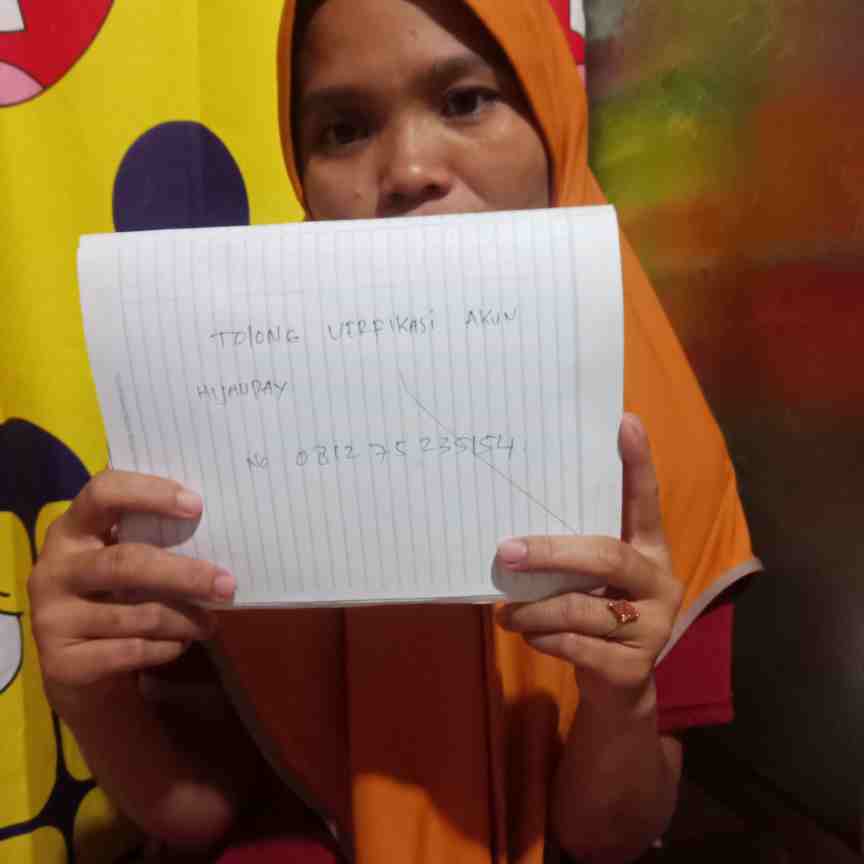 TOLONG VERFIKASI AKUN
HIJAUDAY
No 0812 75 235154